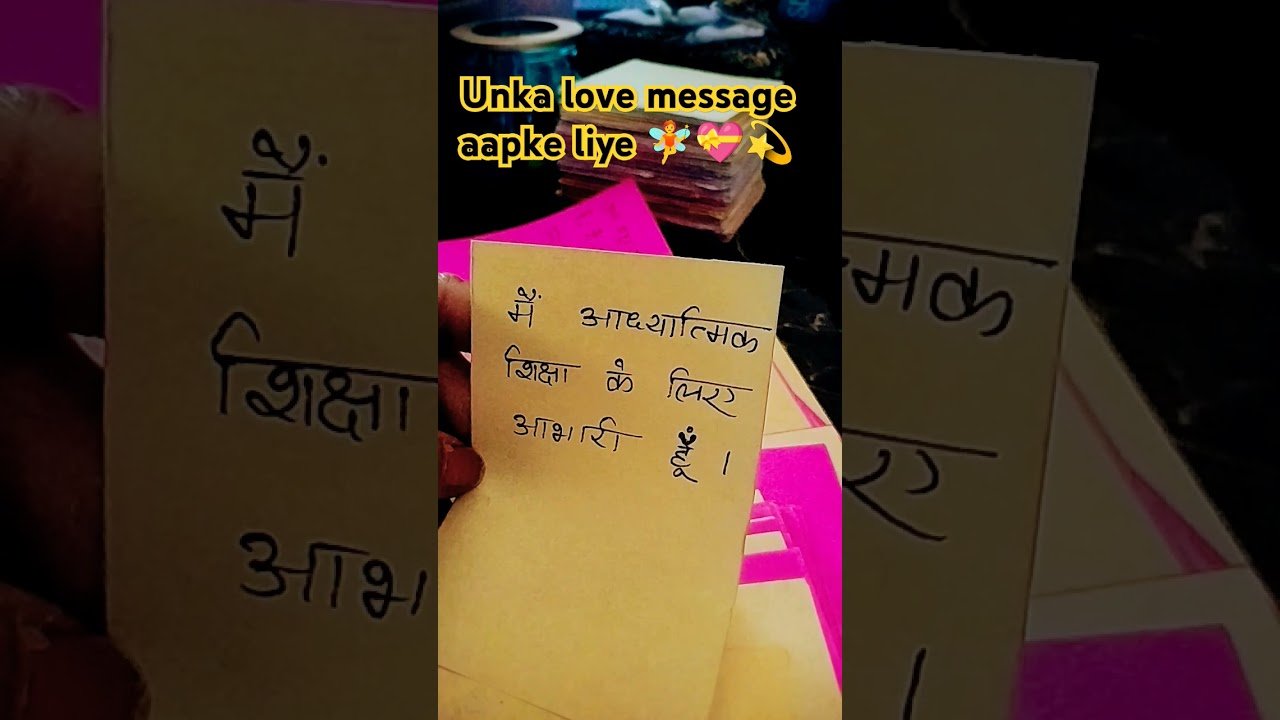 Unka love message
aapke liye 🧚💝💫
मैं आध्यात्मिक
शिक्षा के लिए
आभारी हूँ।